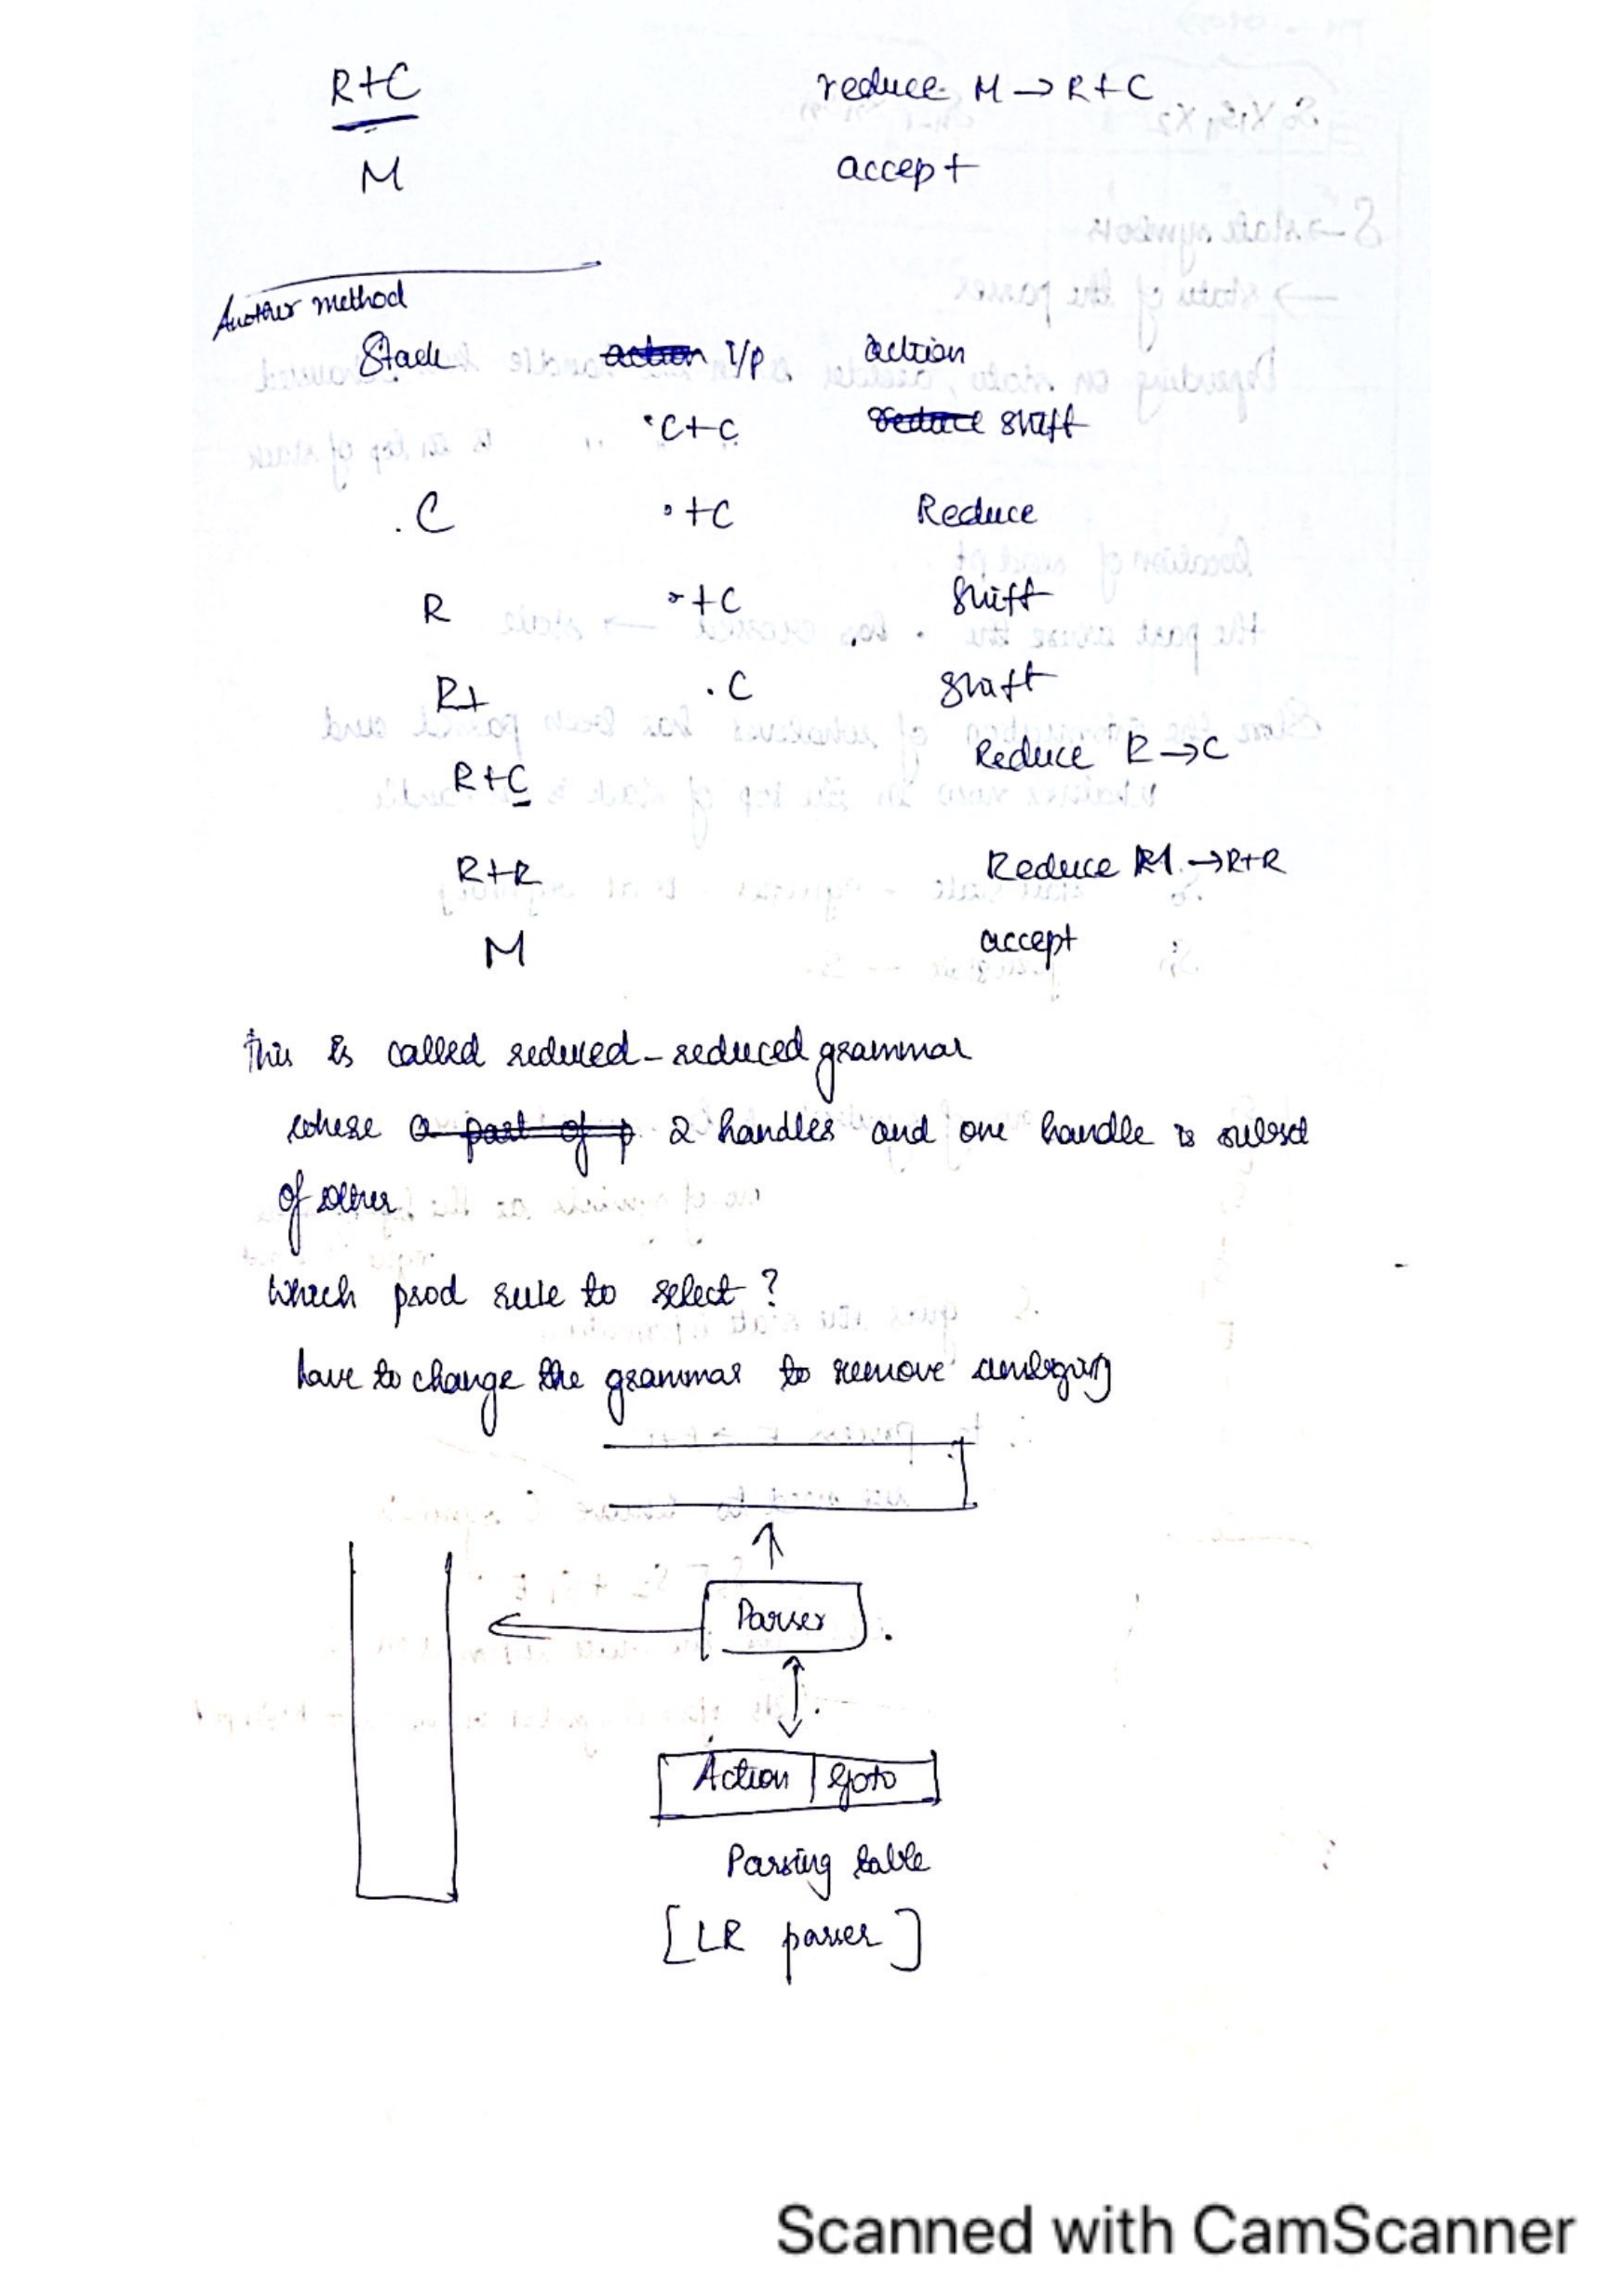 R+C reduce M → R+C
M accept
Another method
Stack I/p action
.C+C shift
.C .+C Reduce
R .+C Shift
R+ .C shift
R+C Reduce R→C
R+R Reduce M → R+R
M accept
This is called reduced-reduced grammar
where 2 handles and one handle is subset
of other
Which prod rule to select?
have to change the grammar to remove ambiguity
Parser
Action | Goto
Parsing table
[LR parser]
Scanned with CamScanner